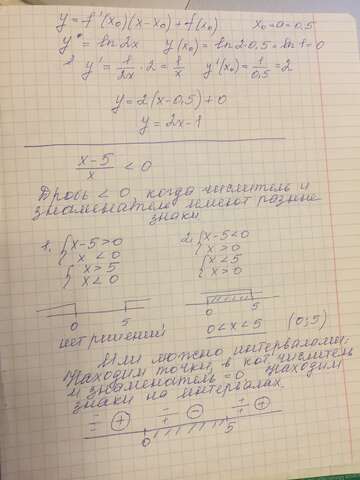 y = f'(x₀)(x-x₀)+f(x₀)   x₀=a=0,5
y = ln2x   y(x₀)=ln2·0,5=ln1=0
y' = 1/2x · 2 = 1/x   y'(x₀)=1/0,5=2
y=2(x-0,5)+0
y=2x-1
x-5/x < 0
Дробь < 0 когда числитель и
знаменатель имеют разные
знаки
1. { x-5>0   2. { x-5<0
{ x<0   { x>0
{ x>5   { x<5
{ x<0   { x>0
0   5   0   5
нет решений   0<x<5   (0;5)
Или можно интервалами:
Находим точки, в кот числитель
и знаменатель =0 Находим
знаки на интервалах.
-/- (+)   -/+ (-)   +/+ (+)
0   5